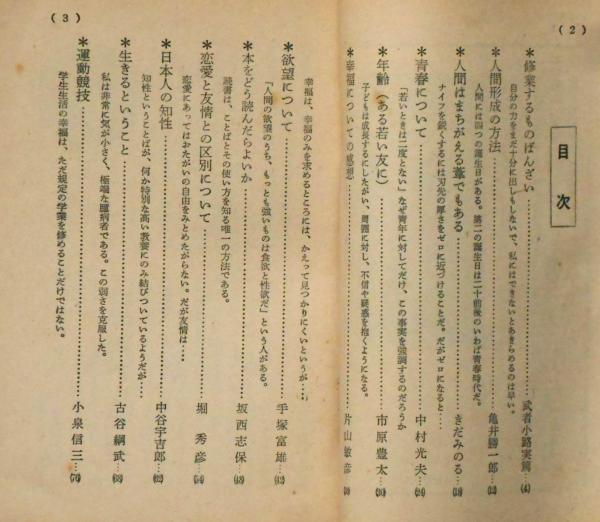 (2)
目次
*修業するものばんざい……武者小路実篤…(4)
自分の力をまだ十分に出しもしないで、私にはできないとあきらめるのは早い。
*人間形成の方法……亀井勝一郎…(12)
人間には四つの誕生日がある。第二の誕生日は二十前後のいわば青春時代だ。
*人間はまちがえる葦でもある……きだみのる…(18)
ナイフを鋭くするには刃先の厚さをゼロに近づけることだ。だがゼロになると……
*青春について……中村光夫…(24)
「若いときは二度とない」なぜ青年に対してだけ、この事実を強調するのだろうか
*年齢(ある若い友に)……市原豊太…(30)
子どもは成長するにしたがい、周囲に対し、不信や疑惑を抱くようになる。
*幸福についての感想……片山敏彦
(3)
幸福は、幸福のみを求めるところには、かえって見つかりにくいというが……
*欲望について……手塚富雄…(42)
「人間の欲望のうち、もっとも強いものは食欲と性欲だ」という人がある。
*本をどう読んだらよいか……坂西志保…(48)
読書は、ことばとその使い方を知る唯一の方法である。
*恋愛と友情との区別について……堀秀彦…(54)
恋愛にあってはおたがいの自由をみとめたがらない。だが友情は……
*日本人の知性……中谷宇吉郎…(62)
知性ということばが、何か特別な高い教養にのみ結びついているようだが……
*生きるということ……古谷綱武…(68)
私は非常に気が小さく、極端な臆病者である。この弱さを克服した。
*運動競技……小泉信三…(76)
学生生活の幸福は、ただ規定の学業を修めることだけではない。